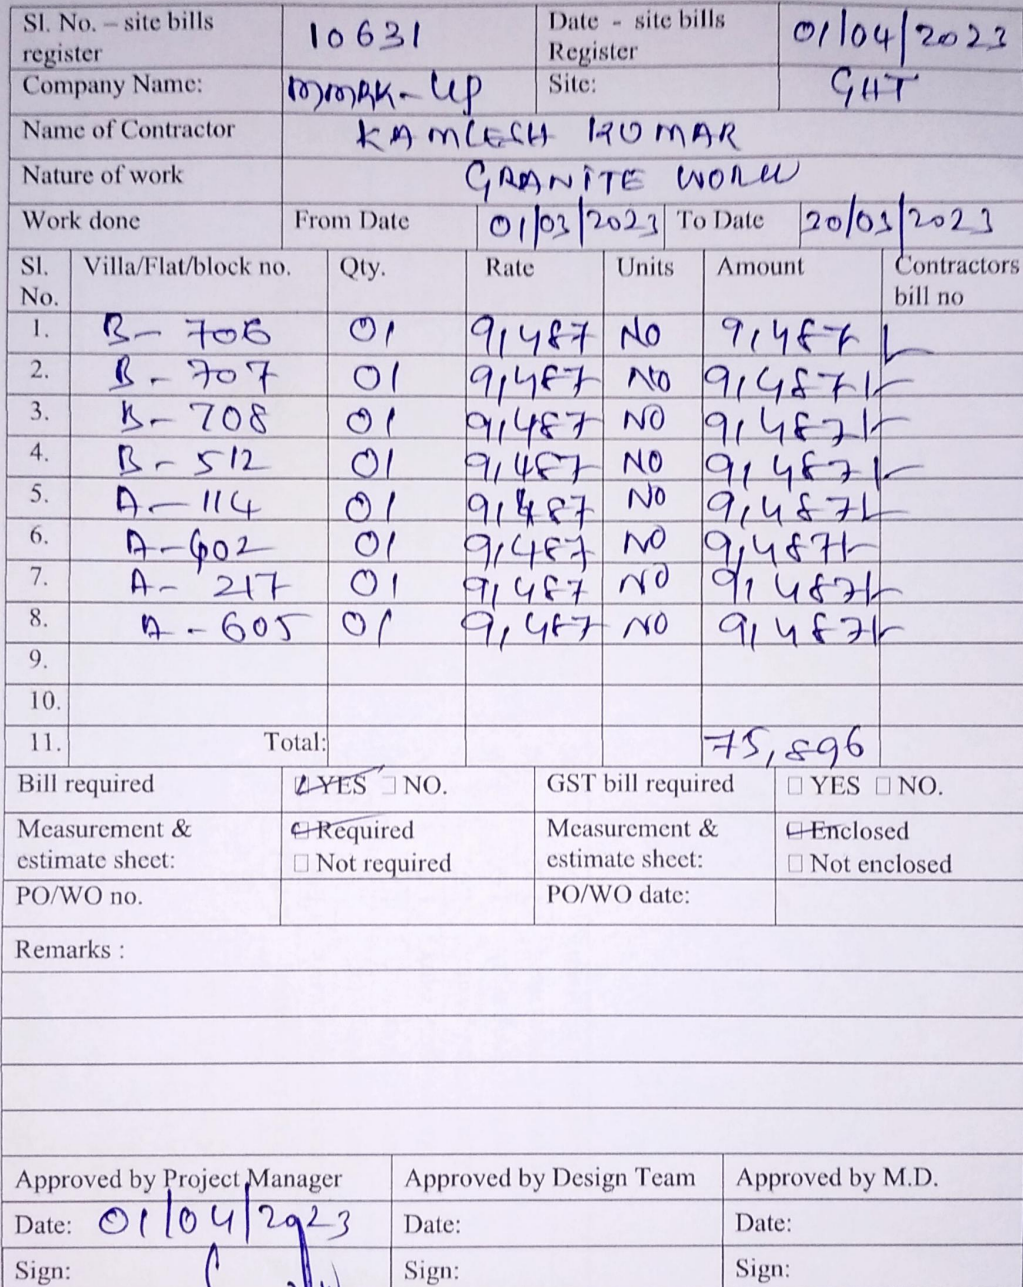 Sl. No. – site bills register 10631 Date - site bills Register 01/04/2023
Company Name: Site: GHT
Name of Contractor KAMLESH KUMAR
Nature of work GRANITE WORK
Work done From Date 01/03/2023 To Date 20/03/2023
Sl. No. Villa/Flat/block no. Qty. Rate Units Amount Contractors bill no
1. B- 706 01 9,487 NO 9,487/-
2. B- 707 01 9,487 NO 9,487/-
3. B- 708 01 9,487 NO 9,487/-
4. B- 512 01 9,487 NO 9,487/-
5. A- 114 01 9,487 NO 9,487/-
6. A- 01 9,487 NO 9,487/-
7. A- 217 01 9,487 NO 9,487/-
8. A- 605 01 9,487 NO 9,487/-
9.
10.
11. Total: 75,896
Bill required YES NO. GST bill required YES NO.
Measurement & estimate sheet: Required Measurement & estimate sheet: Enclosed
Not required Not enclosed
PO/WO no. PO/WO date:
Remarks :
Approved by Project Manager Approved by Design Team Approved by M.D.
Date: 01/04/2023 Date: Date:
Sign: Sign: Sign: